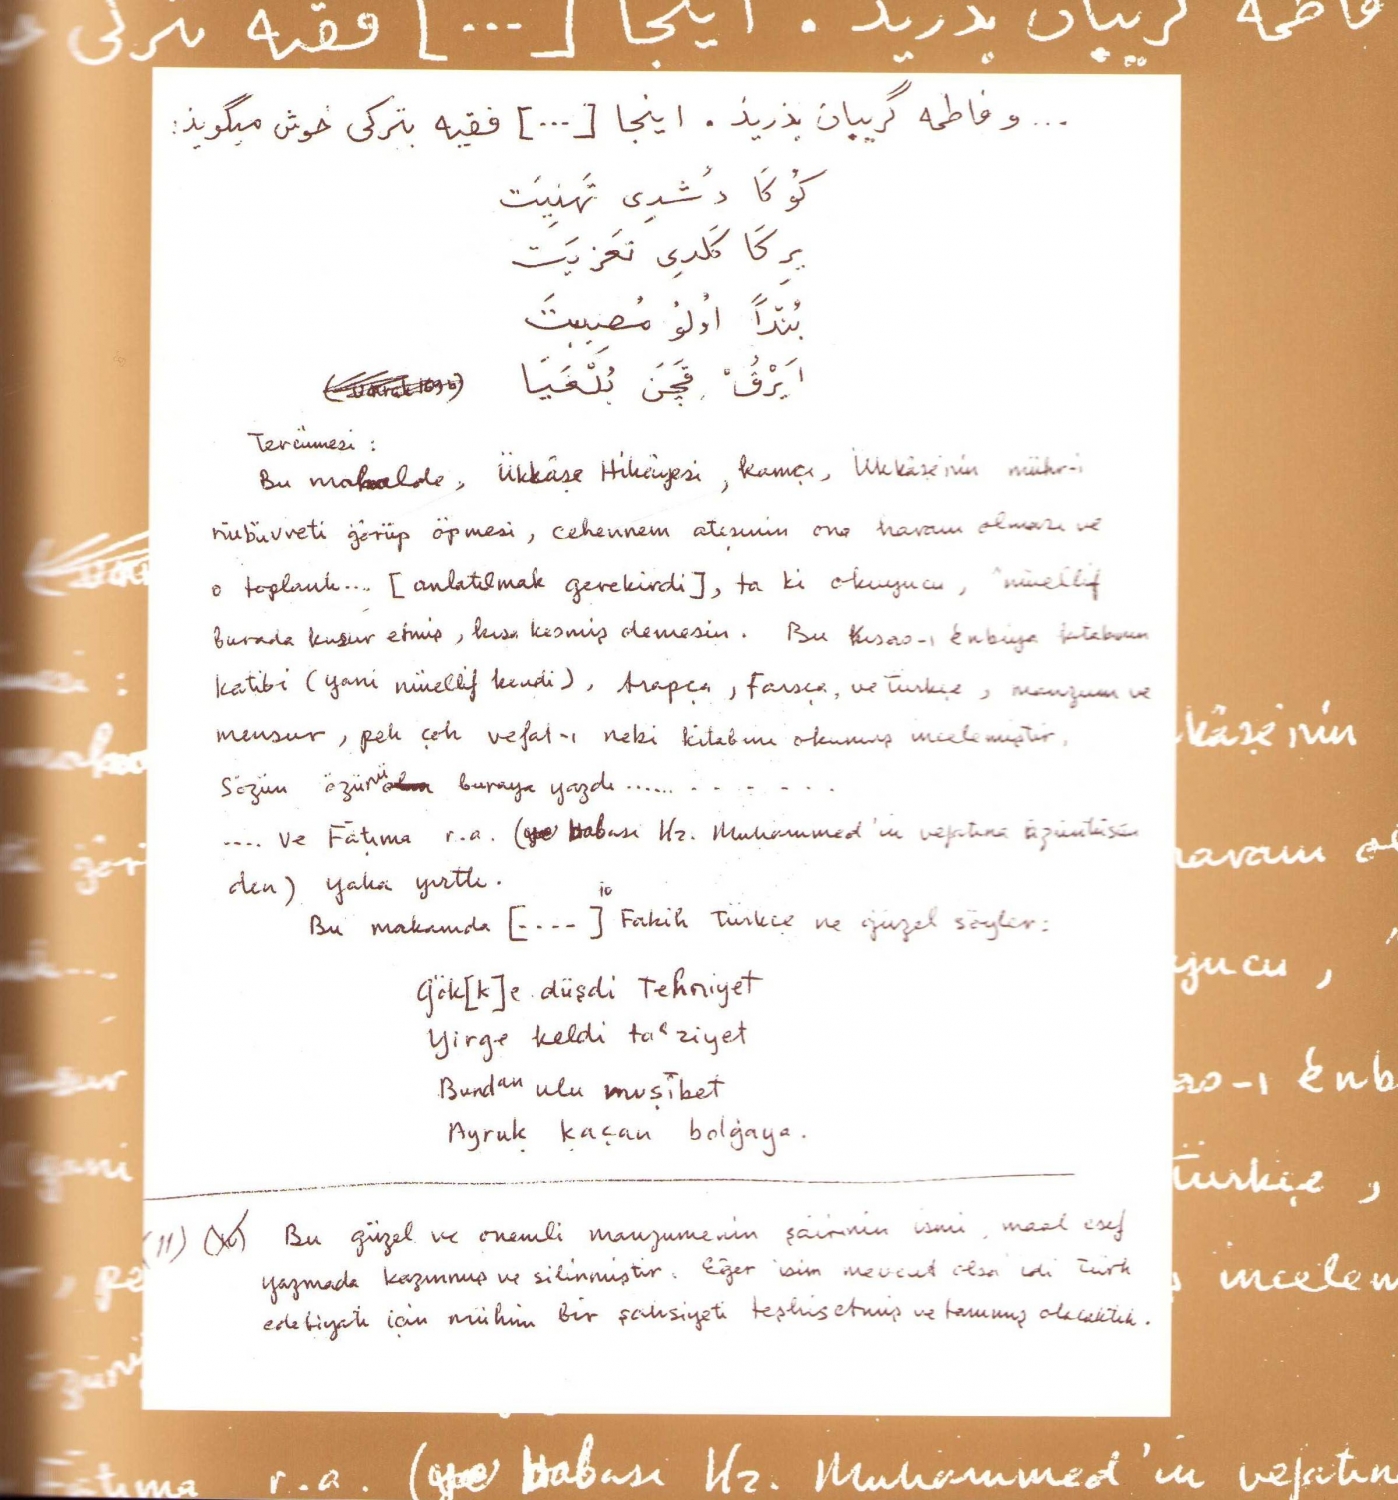 فاطمه گریبان بذرید . اینجا [...] فقیه بترکی
... و فاطمه گریبان بذریذ . اینجا [...] فقیه بترکی خوش میگویذ:
كُوكَا دُشدِی تَهنِیَت
یِركَا كَلدِی تَعَزیَت
بُندَّاً اوُلُوُ مُصِیبتَ
اَیَرْقُ قَچَنَ بُلْغَیَا
(Varak 169b)
Tercümesi :
Bu mahalde, Ükkâşe Hikâyesi, kamçı, Ükkâşe'nin mühr-i
nübüvveti görüp öpmesi, cehennem ateşinin ona haram olması ve
o toplantı... [anlatılmak gerekirdi], ta ki okuyucu, müellif
burada kusur etmiş, kısa kesmiş demesin. Bu Kısas-ı Enbiya kitabının
katibi (yani müellif kendi), Arapça, Farsça, ve Türkçe, manzum ve
mensur, pek çok vefat-ı nebi kitabını okumuş incelemiştir.
Sözün özünü buraya yazdı ...... . - - - . .
.... Ve Fâtıma r.a. ( babası Hz. Muhammed'in vefatına üzüntüsün
den) yaka yırttı.
Bu makamda [....] 10 Fakih Türkçe ne güzel söyler:
Gök[k]e düşdi Tehniyet
Yirge keldi ta‘ziyet
Bundan ulu muṣîbet
Ayruḳ ḳaçan bolġaya.
(11) Bu güzel ve önemli manzumenin şairinin ismi, maal esef
yazmada kazınmış ve silinmiştir. Eğer isim mevcut olsa idi Türk
edebiyatı için mühim bir şahsiyeti teşhis etmiş ve tanımış olacaktık.
kâşe'nin
haram
yucu ,
Türkçe ,
incelem
Fâtıma r.a. ( babası Hz. Muhammed'in vefatın